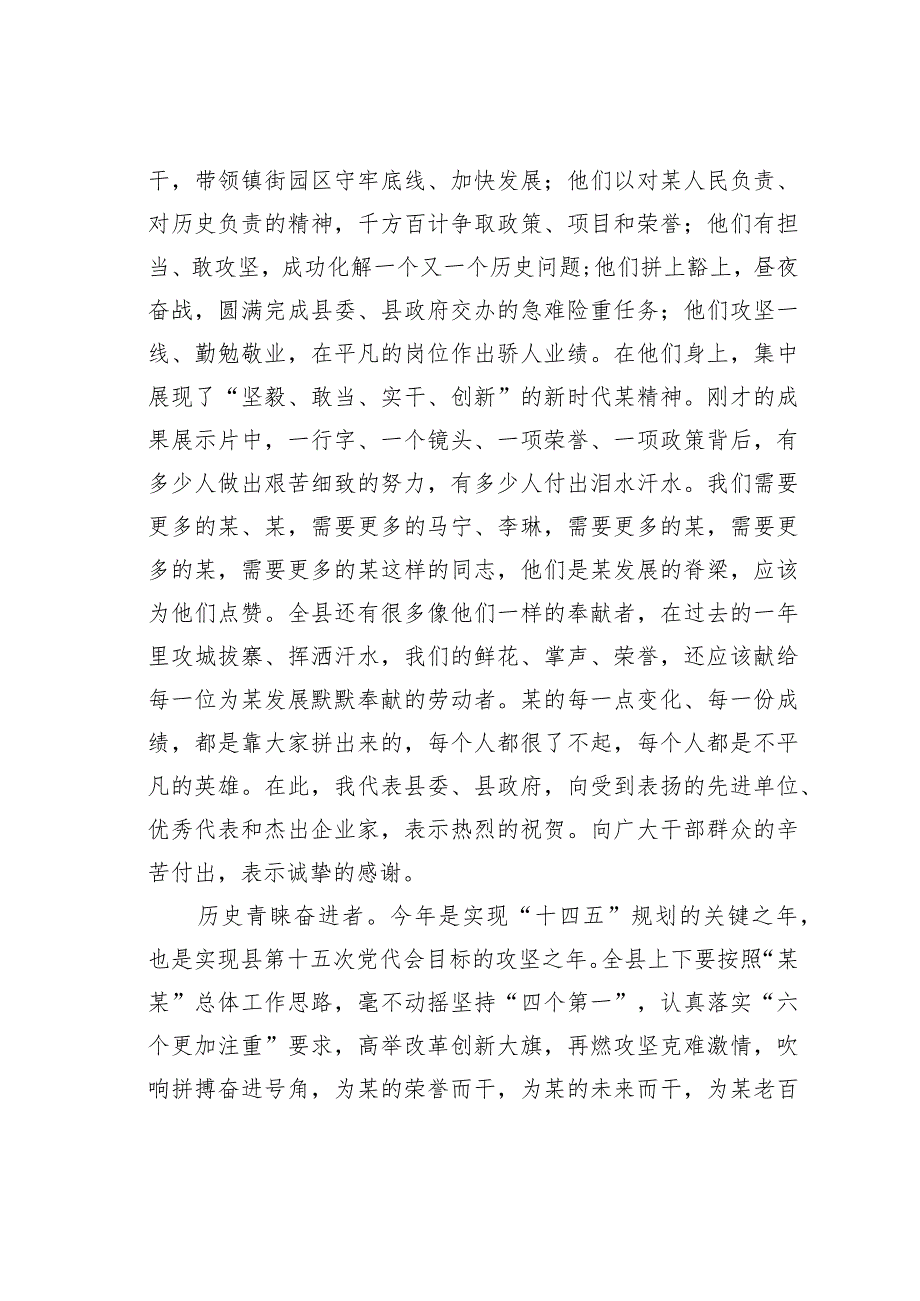 干，带领镇街园区守牢底线、加快发展；他们以对某人民负责、
对历史负责的精神，千方百计争取政策、项目和荣誉；他们有担
当、敢攻坚，成功化解一个又一个历史问题;他们拼上豁上，昼夜
奋战，圆满完成县委、县政府交办的急难险重任务；他们攻坚一
线、勤勉敬业，在平凡的岗位作出骄人业绩。在他们身上，集中
展现了“坚毅、敢当、实干、创新”的新时代某精神。刚才的成
果展示片中，一行字、一个镜头、一项荣誉、一项政策背后，有
多少人做出艰苦细致的努力，有多少人付出泪水汗水。我们需要
更多的某、某，需要更多的马宁、李琳，需要更多的某，需要更
多的某，需要更多的某这样的同志，他们是某发展的脊梁，应该
为他们点赞。全县还有很多像他们一样的奉献者，在过去的一年
里攻城拔寨、挥洒汗水，我们的鲜花、掌声、荣誉，还应该献给
每一位为某发展默默奉献的劳动者。某的每一点变化、每一份成
绩，都是靠大家拼出来的，每个人都很了不起，每个人都是不平
凡的英雄。在此，我代表县委、县政府，向受到表扬的先进单位、
优秀代表和杰出企业家，表示热烈的祝贺。向广大干部群众的辛
苦付出，表示诚挚的感谢。
历史青睐奋进者。今年是实现“十四五”规划的关键之年，
也是实现县第十五次党代会目标的攻坚之年。全县上下要按照“某
某”总体工作思路，毫不动摇坚持“四个第一”，认真落实“六
个更加注重”要求，高举改革创新大旗，再燃攻坚克难激情，吹
响拼搏奋进号角，为某的荣誉而干，为某的未来而干，为某老百